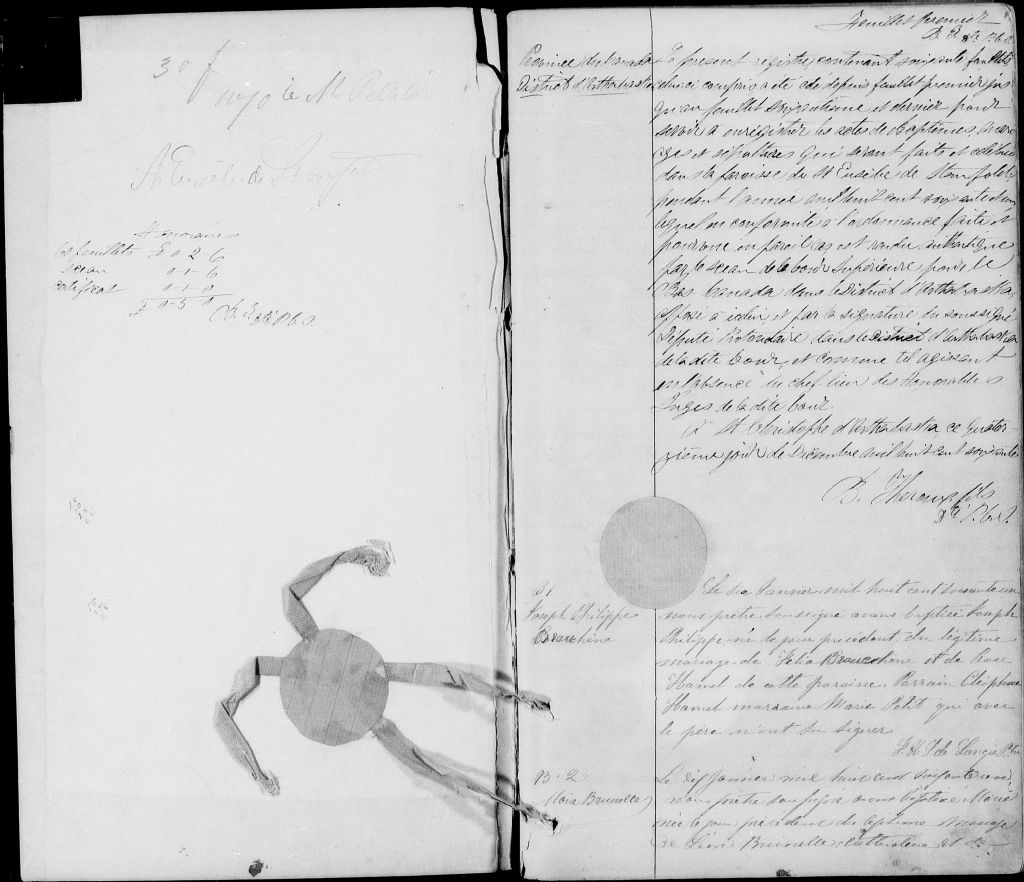 30 f
St Eusèbe de Stanfold
Honoraires
60 feuillets £ 0 2 6
sceau 1-1-6
certificat 0-1-0
£ 0-5-0
Feuillet premier
Province du Canada
District d'Arthabaska
Le présent registre, contenant soixante feuillets
celui ci compris a été coté depuis feuillet premier jus
qu'au feuillet soixantième et dernier pour
servir à enrégistrer les actes de Baptêmes, Maria
ges et sépultures qui seront faits et célébrés
dans la paroisse de St Eusèbe de Stanfold
pendant l'année mil huit cent soixante et un
lequel en conformité à l'ordonnance faite et
pourvue en pareil cas est rendu authentique
par le sceau de la Cour Supérieure pour le
Bas Canada dans le District d'Arthabaska
apposé à icelui, et par la signature du soussigné
Député Protonotaire dans le District d'Arthabaska
de la dite Cour, et comme tel agissant
en l'absence du chef lieu des Honorables
Juges de la dite Cour.
A St Christophe d'Arthabaska ce quator-
zième jour de Décembre mil huit cent soixante
B. Theroux fils
Dté P.C.S.
B 1
Joseph Philippe
Beauchêne
Le six Janvier mil huit cent soixante un
nous prêtre soussigné avons baptisé Joseph
Philippe né le jour précédent du légitime
mariage de Félix Beauchêne et de Rose
Hamel de cette paroisse. Parrain Cléophas
Hamel marraine Marie Petit qui avec
le père n'ont su signer
B-2
Brunelle
Le dix Janvier mil huit cent soixante un,
nous prêtre soussigné avons baptisé Marie
née le jour précédent du légitime mariage
de Léon Brunelle, cultivateur et de